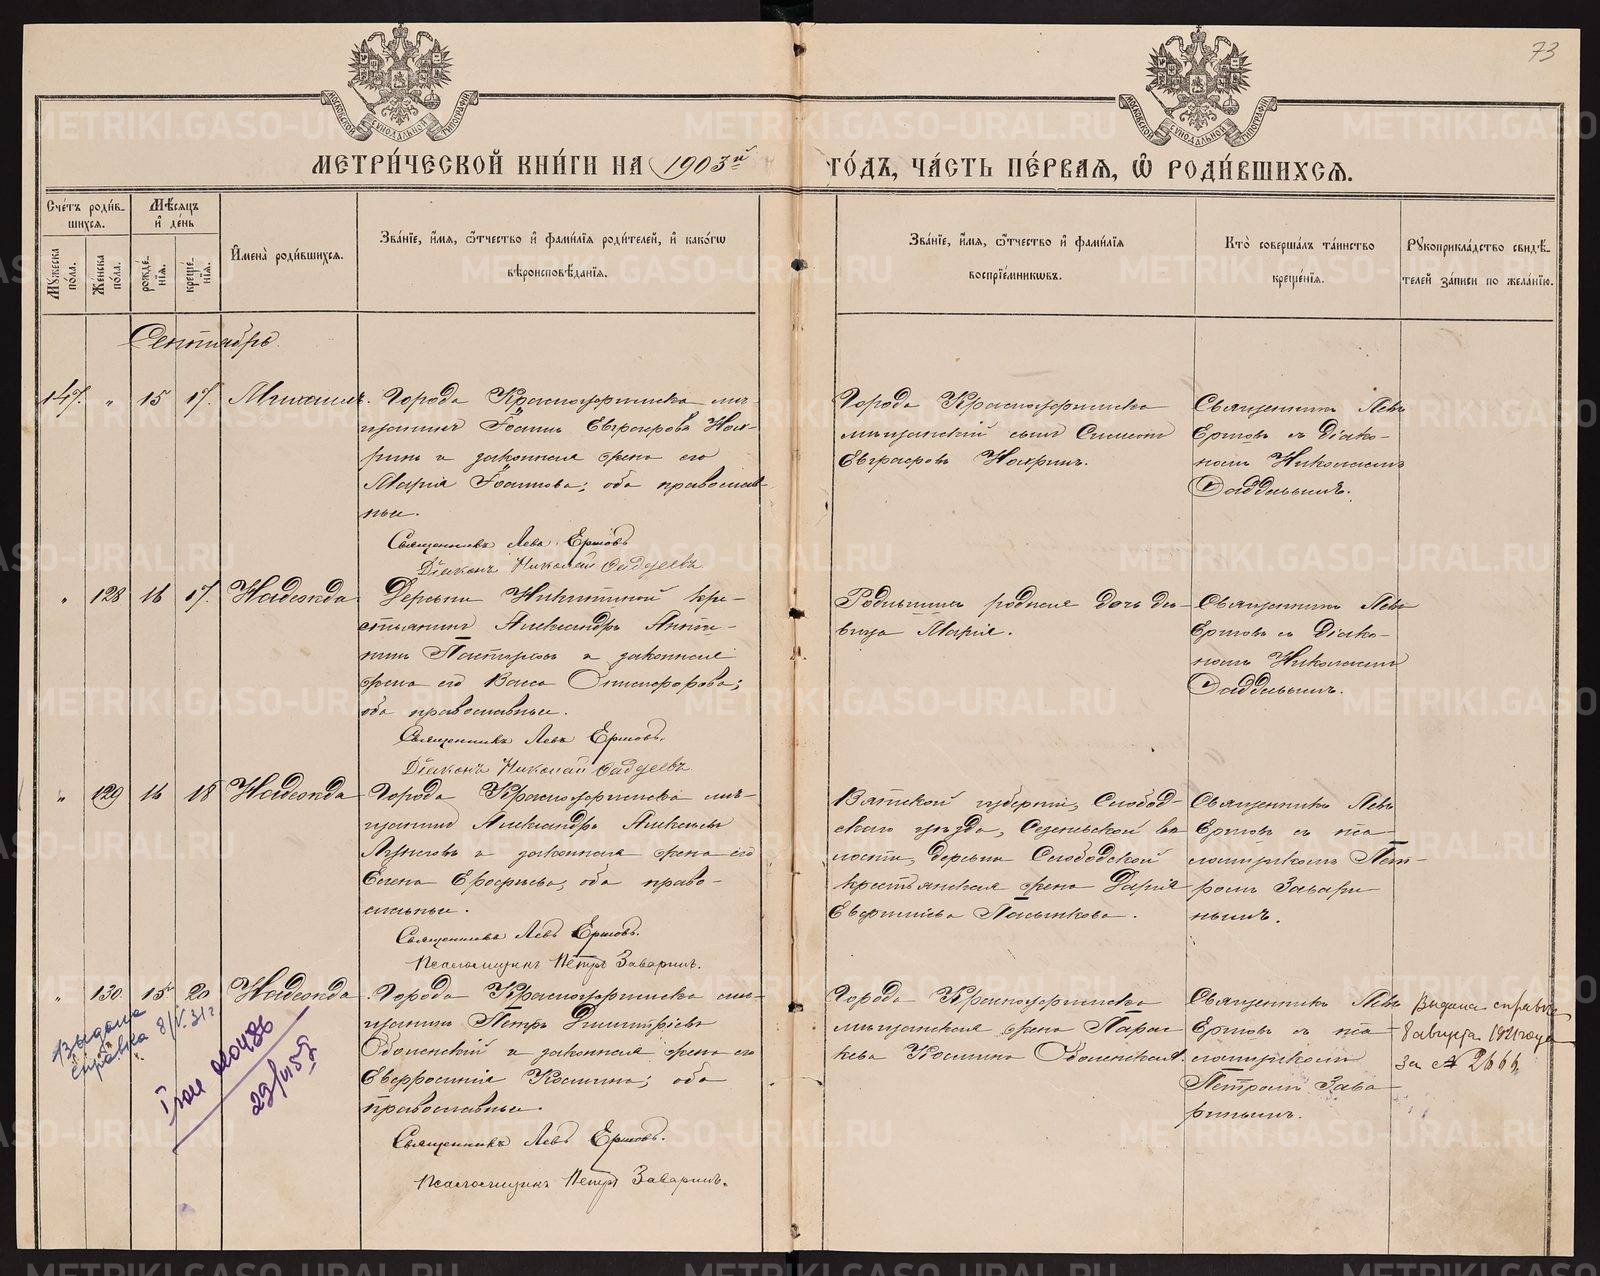 73
МОСКОВСКОЙ СѴНОДАЛЬНОЙ ТИПОГРАФІИ
МОСКОВСКОЙ СѴНОДАЛЬНОЙ ТИПОГРАФІИ
МЕТРИ́ЧЕСКОЙ КНИ́ГИ НА 1903й ГО́ДЪ, ЧА́СТЬ ПЕ́РВАЯ, Ѽ РОДИ́ВШИХСЯ.
Сче́тъ роди́в-
шихся.
Мꙋ́жеска по́ла.
Же́нска по́ла.
Мѣ́сяцъ
и҆ де́нь
рожде́-нїя.
креще́-нїя.
И҆мена̀ роди́вшихся.
Зва́нїе, и҆́мя, ѻ҆́тчество и҆ фами́лїя роди́телей, и҆ како́гѡ
вѣроисповѣ́данїя.
Зва́нїе, и҆́мя, ѻ҆́тчество и҆ фами́лїя
воспрїе́мникѡвъ.
Кто̀ соверша́лъ та́инство
креще́нїя.
Рꙋкоприкла́дство свидѣ́-
телей за́писи по жела́нїю.
Сентябрь
147. " 15 17. Михаилъ.
Города Красноуфимска мѣ-
щанинъ Іоаннъ Евграфовъ Нох-
ринъ и законная жена его
Марія Іоаннова; оба православ-
ные.
Священникъ Левъ Ершовъ
Діаконъ Николай Фаддеевъ
Города Красноуфимска
мѣщанскій сынъ Симеонъ
Евграфовъ Нохринъ.
Священникъ Левъ
Ершовъ съ Діако-
номъ Николаемъ
Фаддеевымъ.
" 128 16 17. Надежда
Деревни Никитиной кре-
стьянинъ Александръ
и законная
жена его Васса Онисифорова;
оба православные.
Священникъ Левъ Ершовъ.
Діаконъ Николай Фаддеевъ
Родившихся родная дочь дѣ-
вица Марія.
Священникъ Левъ
Ершовъ съ Діако-
номъ Николаемъ
Фаддеевымъ.
" 129 16 18 Надежда
Города Красноуфимска мѣ-
щанинъ Александръ Алексѣевъ
и законная жена его
Елена Ерофѣева, оба право-
славные.
Священникъ Левъ Ершовъ.
Псаломщикъ Петръ Заваринъ.
Вятской губерніи, Слобод-
ского уѣзда, во-
лости, деревни Слободской
крестьянская жена Дарія
Евфиміева
Священникъ Левъ
Ершовъ съ пса-
ломщикомъ Пет-
ромъ Завари-
нымъ.
" 130 15 20 Надежда
Города Красноуфимска мѣ-
щанинъ Петръ Димитріевъ
Оболенскій и законная жена его
Евфросинія Космина; оба
православные.
Священникъ Левъ Ершовъ.
Псаломщикъ Петръ Заваринъ.
Города Красноуфимска
мѣщанская жена Парас-
кева Космина Оболенская.
Священникъ Левъ
Ершовъ съ пса-
ломщикомъ
Петромъ Зава-
ринымъ.
Выдана справка
8 августа 1921 года
за № 2666
Выдана
справка 8/V.31г
020486
METRIKI.GASO-URAL.RU